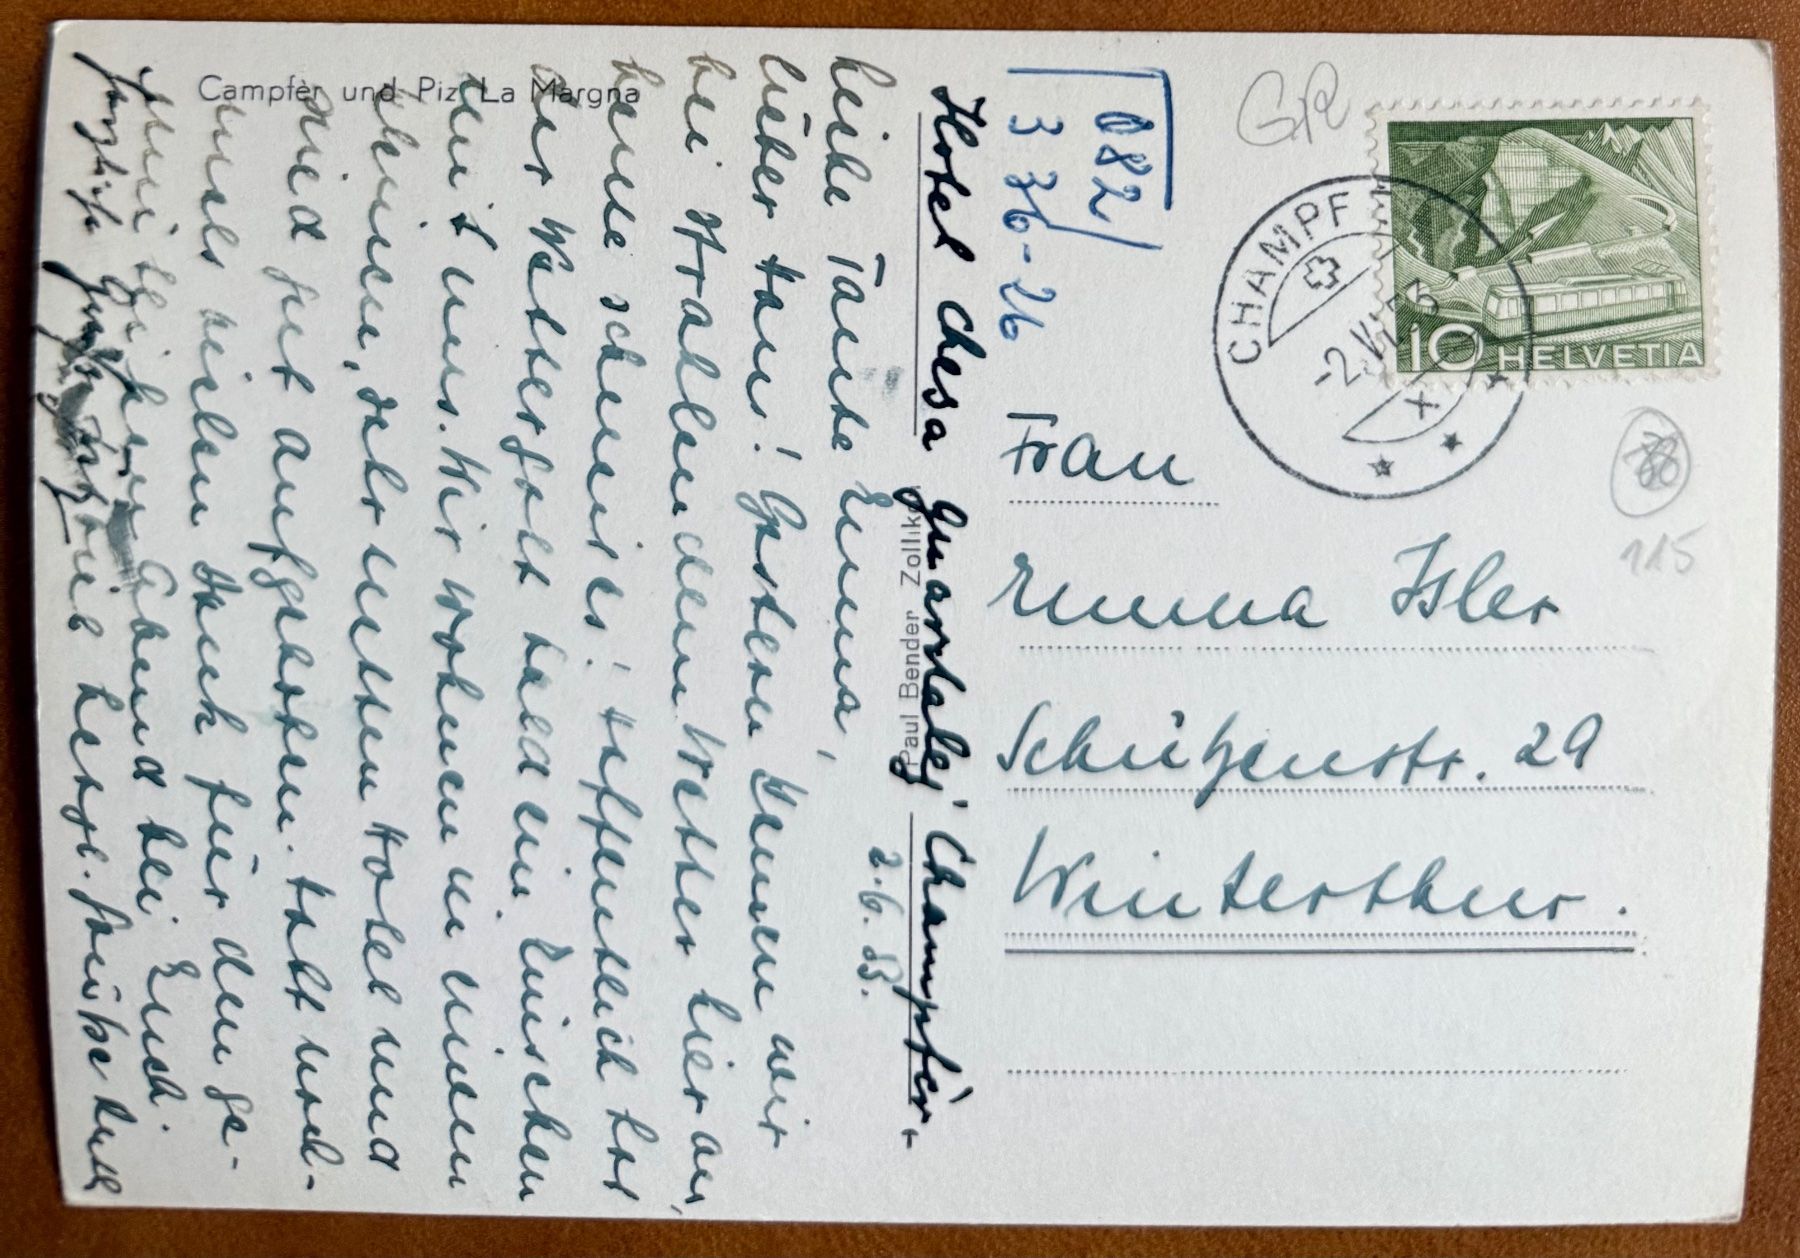 Campfèr und Piz La Margna
Hotel Chesa Guardalej Champfèr.
2.6.53.
Liebe Tante Emma,
lieber Hans! Gestern kamen wir
bei strahlendem Wetter hier an,
heute schneit es! Hoffentlich hat
der Wettergott bald ein Einsehen
mit uns. Wir wohnen in einem
kleinen, sehr netten Hotel und
sind gut aufgehoben. Habt noch-
mals vielen Dank für den ge-
Abend bei Euch.
herzl. Grüsse
Paul Bender Zollikon
082/
3 36-26
GR
CHAMPF
-2.VI.53
X
10 HELVETIA
115
Frau
Emma Isler
Schützenstr. 29
Winterthur.